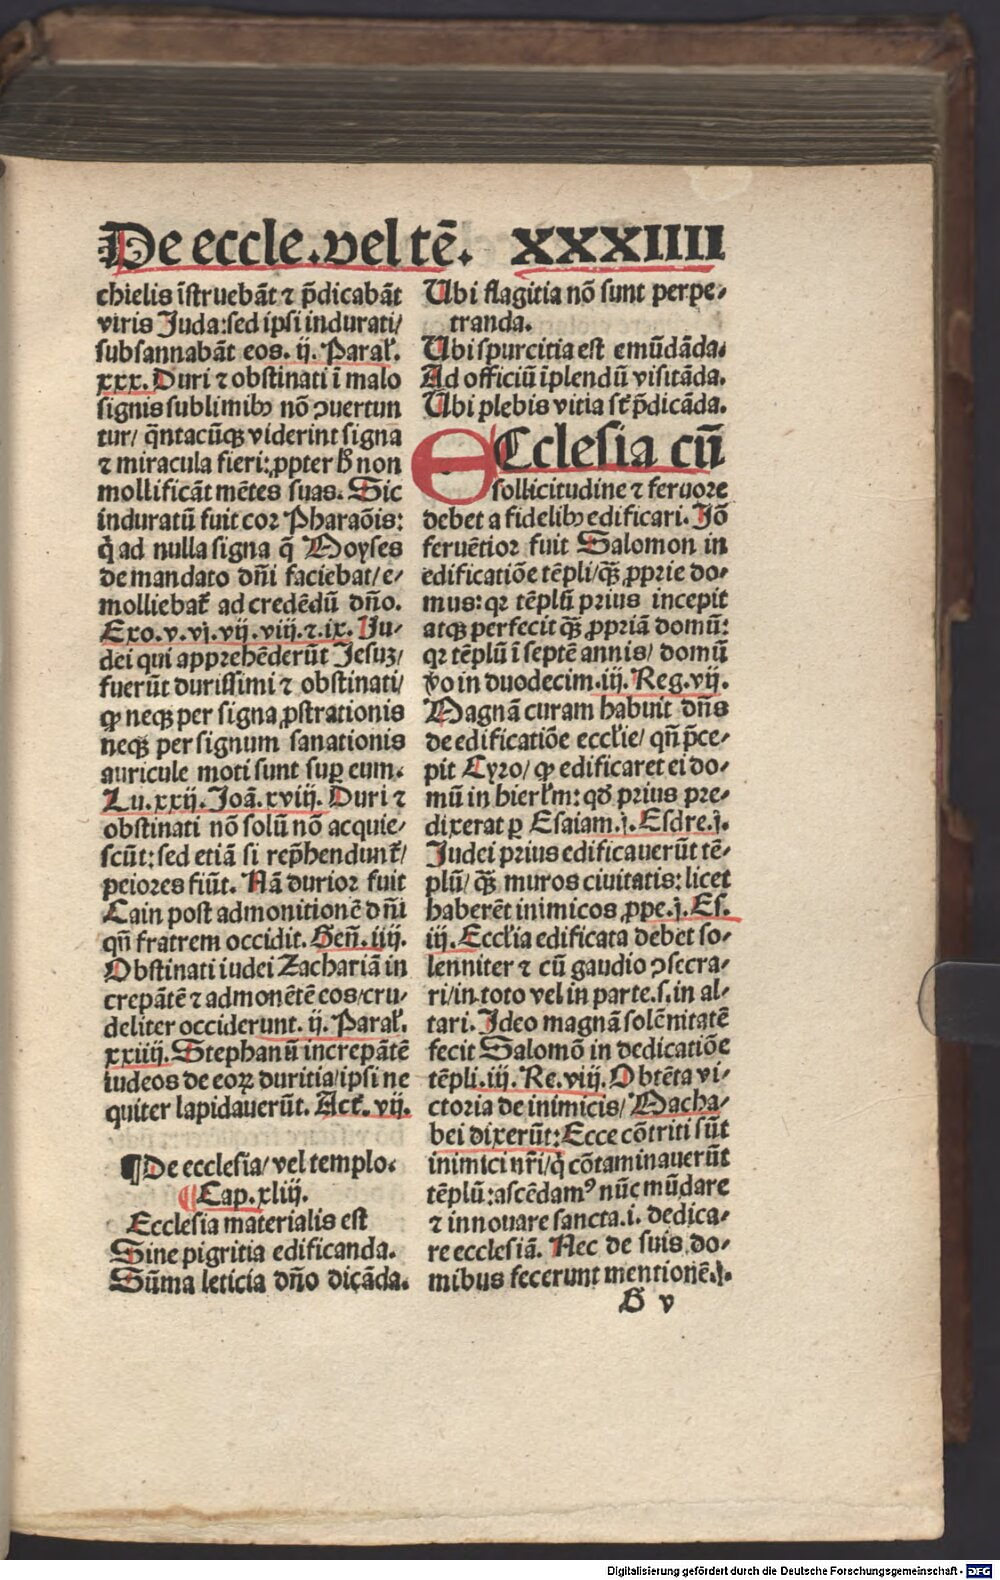 De eccle.vel tē. XXXIIII
chielis īstruebāt ⁊ p̄dicabāt
viris Juda:sed ipsi indurati/
subsannabāt eos. ij. Paraƚ.
xxx. Duri ⁊ obstinati ī malo
signis sublimibꝰ nō ↄuertun
tur/ q̄ntacūqꝫ viderint signa
⁊ miracula fieri: ꝓpter h̄ non
mollificāt mētes suas. Sic
induratū fuit cor Pharaōis:
q̄ ad nulla signa q̄ Moyses
de mandato dn̄i faciebat/e⸗
molliebat̄ ad credēdū dn̄o.
Exo.v.vj.vij.viij.⁊.ix. Ju⸗
dei qui apprehēderūt Jesuꝫ/
fuerūt durissimi ⁊ obstinati/
ꝙ neqꝫ per signa ꝓstrationis
neqꝫ per signum sanationis
auricule moti sunt suꝑ eum.
Lu.xxij. Joā.xviij. Duri ⁊
obstinati nō solū nō acquie⸗
scūt: sed etiā si rep̄hendunt̄/
peiores fiūt. Nā durior fuit
Cain post admonitionē dn̄i
qn̄ fratrem occidit. Gen̄. iiij.
Obstinati iudei Zachariā in
crepātē ⁊ admonētē eos/cru⸗
deliter occiderunt. ij. Paraƚ.
xxiiij. Stephanū increpātē
iudeos de eoꝝ duritia/ipsi ne
quiter lapidauerūt. Act̄. vij.
¶De ecclesia/ vel templo.
¶Cap.xliij.
Ecclesia materialis est
Sine pigritia edificanda.
Sūma leticia dn̄o dicāda.
Ubi flagitia nō sunt perpe⸗
tranda.
Ubi spurcitia est emūdāda.
Ad officiū īplendū visitāda.
Ubi plebis vitia st̄ p̄dicāda.
ECclesia cū
sollicitudine ⁊ feruore
debet a fidelibꝰ edificari. Jō
feruētior fuit Salomon in
edificatiōe tēpli/qꝫ̄ ꝓprie do⸗
mus: qꝛ tēplū prius incepit
atqꝫ perfecit qꝫ̄ ꝓpriā domū:
qꝛ tēplū ī septē annis/ domū
v̄o in duodecim.iij. Reg.vij.
Magnā curam habuit dn̄s
de edificatiōe eccƚie/ qn̄ p̄ce⸗
pit Cyro/ ꝙ edificaret ei do⸗
mū in hierƚm: qd̄ prius pre⸗
dixerat ꝑ Esaiam.j. Esdre.j.
Judei prius edificauerūt tē⸗
plū/ qꝫ̄ muros ciuitatis: licet
haberēt inimicos ꝓpe.j. Es.
iij. Eccƚia edificata debet so⸗
lenniter ⁊ cū gaudio ↄsecra⸗
ri/in toto vel in parte.s.in al⸗
tari. Ideo magnā solēnitatē
fecit Salomō in dedicatiōe
tēpli.iij. Re.viij. Obtēta vi⸗
ctoria de inimicis/ Macha⸗
bei dixerūt: Ecce cōtriti sūt
inimici nr̄i/q̄ cōtaminauerūt
tēplū: ascēdamꝰ nūc mūdare
⁊ innouare sancta.i. dedica⸗
re ecclesiā. Nec de suis do⸗
mibus fecerunt mentionē.j.
G v
Digitalisierung gefördert durch die Deutsche Forschungsgemeinschaft - DFG